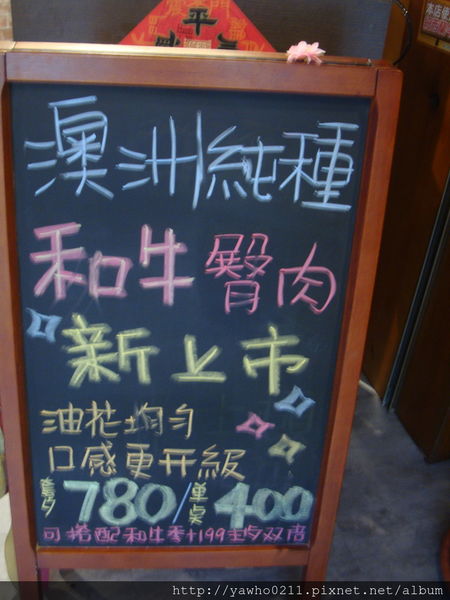 平
本店使
澳洲純種
和牛臀肉
新上市
油花均勻
口感更升級
套780/單點400
可搭配和牛季+199主點双倍
http://yawho0211.pixnet.net/album